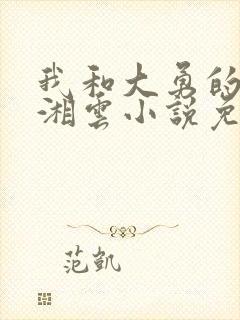 我和大勇的
湘雲小說免
范凱